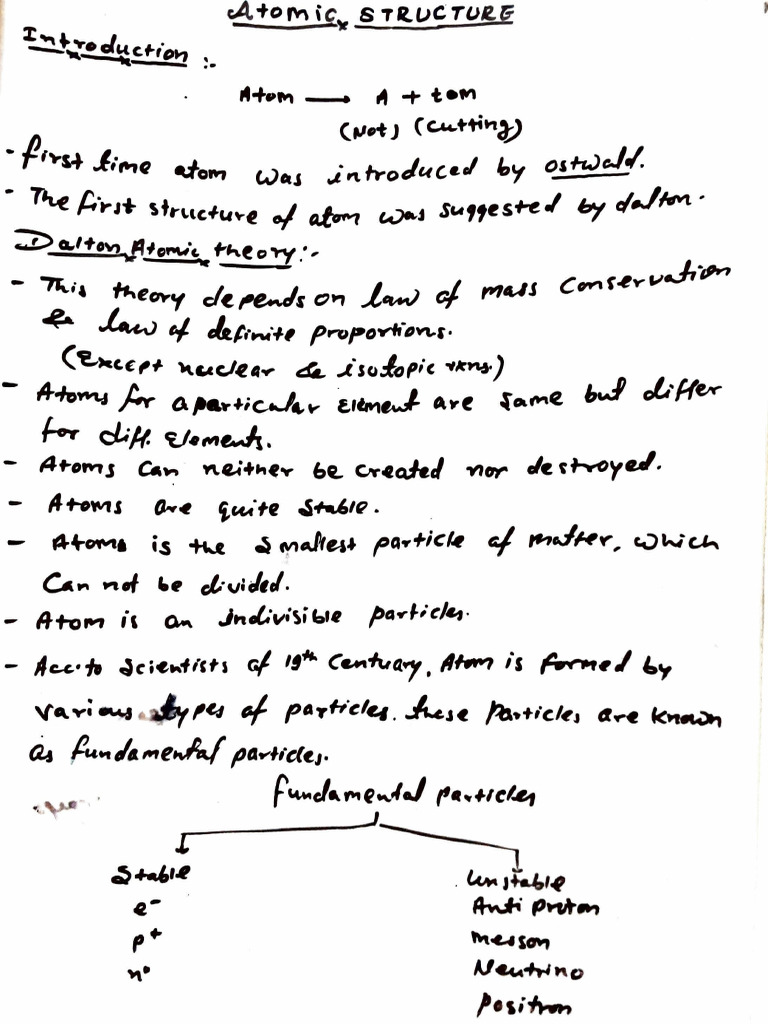 Atomic STRUCTURE
Introduction :-
Atom → A + tom
(Not) (Cutting)
- first time atom was introduced by ostwald.
- The first structure of atom was suggested by dalton.
Dalton Atomic theory:-
- This theory depends on law of mass conservation
& law of definite proportions.
(Except nuclear & isotopic rxns.)
- Atoms for a particular element are same but differ
for diff. elements.
- Atoms can neither be created nor destroyed.
- Atoms are quite stable.
- Atoms is the smallest particle of matter, which
can not be divided.
- Atom is an indivisible particles.
- Acc. to scientists of 19th Centuary, Atom is formed by
various types of particles. these particles are known
as fundamental particles.
fundamental particles
Stable Unstable
e⁻ Anti proton
p⁺ messon
n° Neutrino
positron